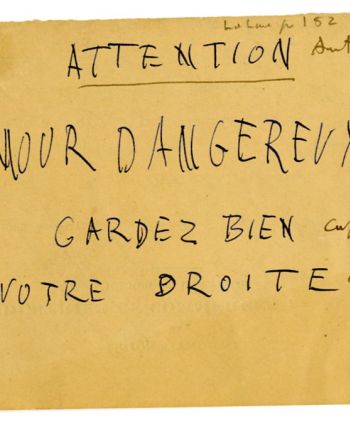 p 152
ATTENTION
MOUR DANGEREUX
GARDEZ BIEN
VOTRE DROITE